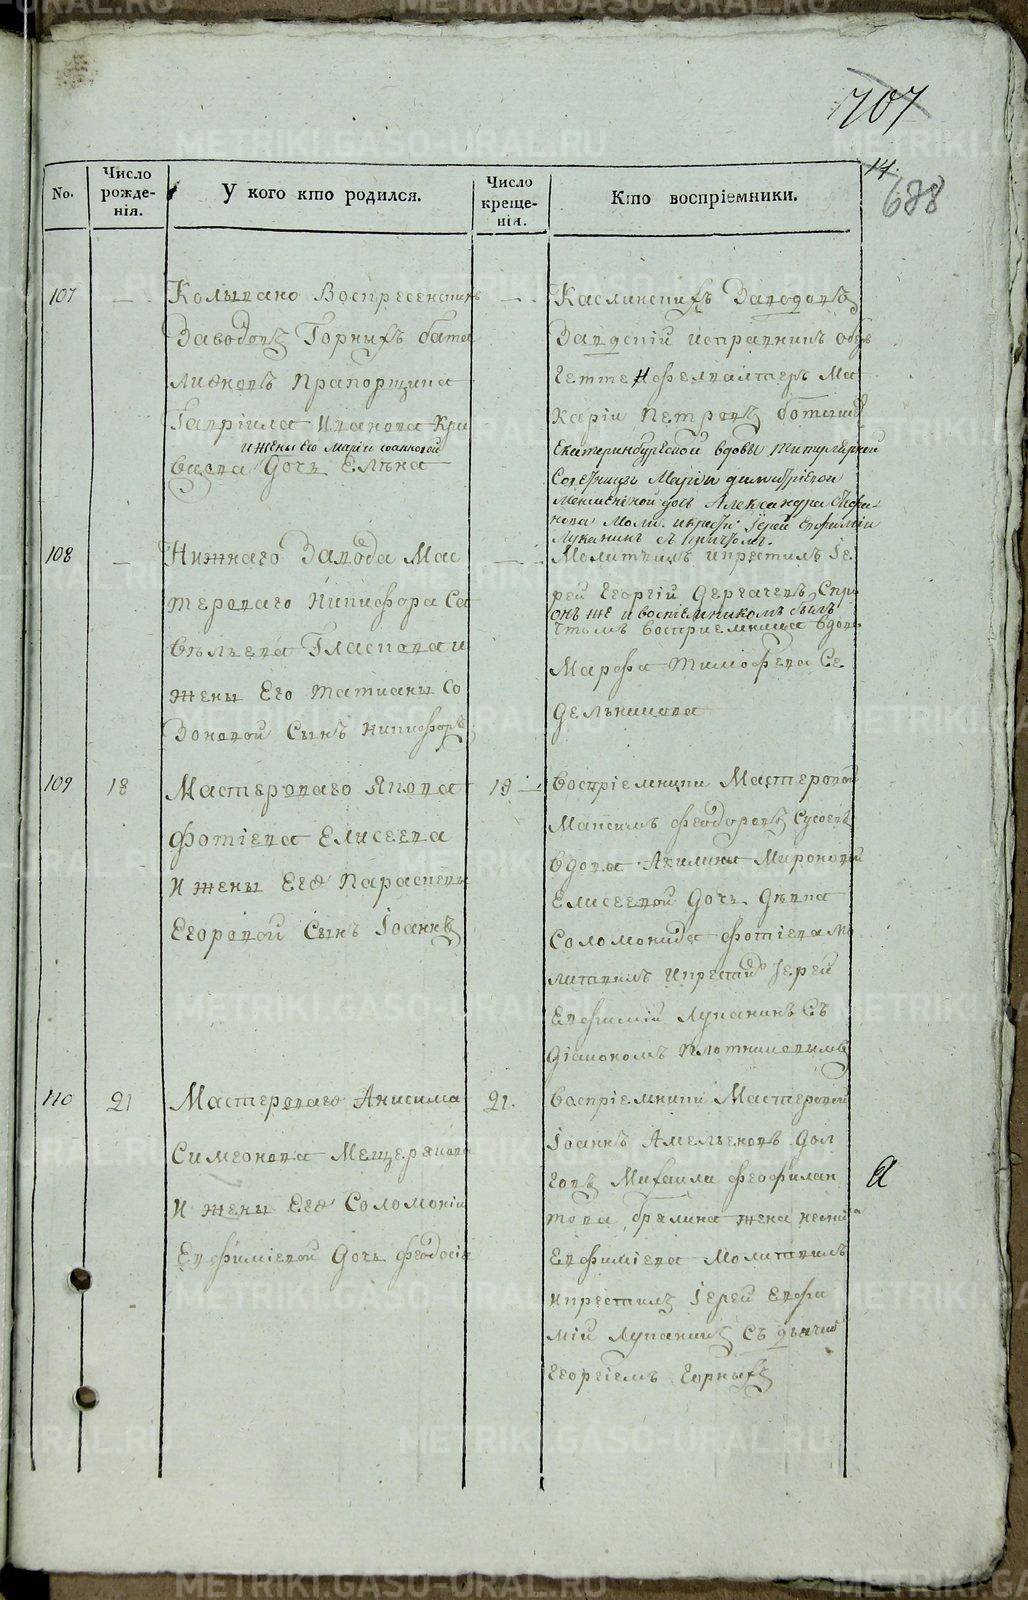 707
14.
688
No.
Число рожде-нія.
У кого кто родился.
Число креще-нія.
Кто воспріемники.
107
Колывано Воспресенских
Заводовъ Горныхъ бата
лионовъ Прапорщика
Гавріила Иванова Кри
и жены его Маріи
Дочь Елена
Каслинскихъ Заводовъ
исправникъ обер
Ма
карій Петровъ
Екатеринбургской вдовы титулярной
Советницы Маріи Димитріевой
дочь Александра
Іерей Евфимій
Луканинъ с причтом.
108
Нижнаго Завода Мас
тероваго Никифора Са
вельева Гласкова и
жены Его Татианы Со
зоновой Сынъ Никифоръ
Молитвилъ и крестилъ Іе
рей Георгій Дергачевъ с при
онъ же и воспремникомъ былъ
чтомъ восприемница вдова
Марфа Тимофеева Се
дельникова
109
18
Мастероваго Якова
Фотіева Елисеева
и жены Его Параскевы
Егоровой Сынъ Іоаннъ
19
воспріемники Мастеровой
Максимъ Феодоровъ Сусоевъ
вдова Акилины Мироновой
Елисеевой Дочь девка
Соломонида Фотіева мо
литвилъ и крестилъ Іерей
Евфимій Луканинъ Съ
діакономъ Плотниковымъ
110
21
Мастероваго Анисима
Симеонова Мещерякова
и жены Его Соломоніи
Евфиміевой Дочь Феодосія
21.
воспріемники Мастеровой
Іоаннъ Амельеновъ Дол
говъ Михаила Феофилак
това жена
Евфиміева Молитвилъ
и крестилъ Іерей Евфи
мій Луканинъ Съ дьячкомъ
Георгіемъ Горныхъ